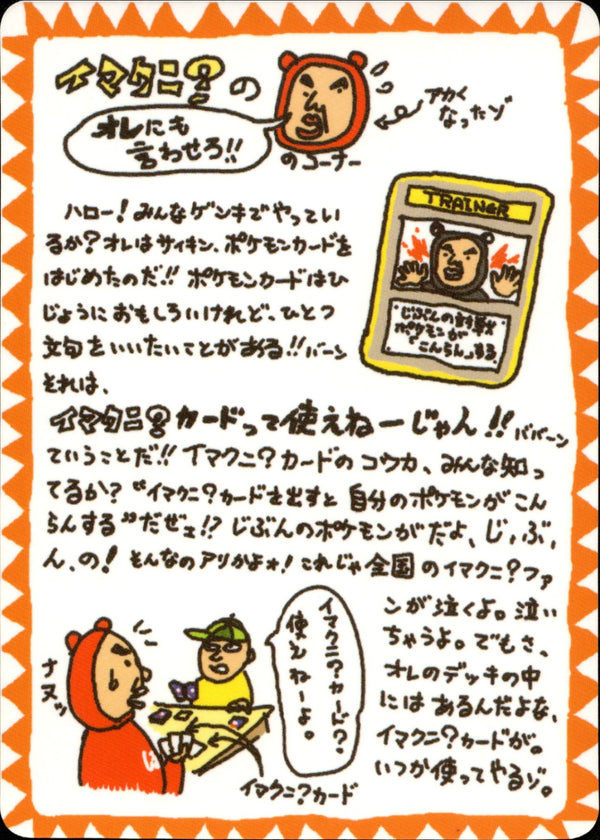 イマクニ?の
オレにも
言わせろ!!
のコーナー
アカく
なったゾ
ハロー!みんなゲンキでやってい
るか?オレはサイキン、ポケモンカードを
はじめたのだ!!ポケモンカードはひ
じょうにおもしろいけれど、ひとつ
文句をいいたいことがある!!バーン
それは、
TRAINER
じぶんの対戦
ポケモンが
「こんらん」する。
イマクニ?カードって使えねーじゃん!!ババーン
ていうことだ!!イマクニ?カードのコウカ、みんな知っ
てるか?“イマクニ?カードを出すと自分のポケモンがこん
らんする”だぜェ!?じぶんのポケモンがだよ、じ、ぶ、
ん、の!そんなのアリかよォ!これじゃ全国のイマクニ?ファ
ンが泣くよ。泣い
ちゃうよ。でもさ、
オレのデッキの中
にはあるんだよな、
イマクニ?カードが。
いつか使ってやるゾ。
イマクニ?カード?
使えねーよ。
ナヌッ
イマクニ?カード